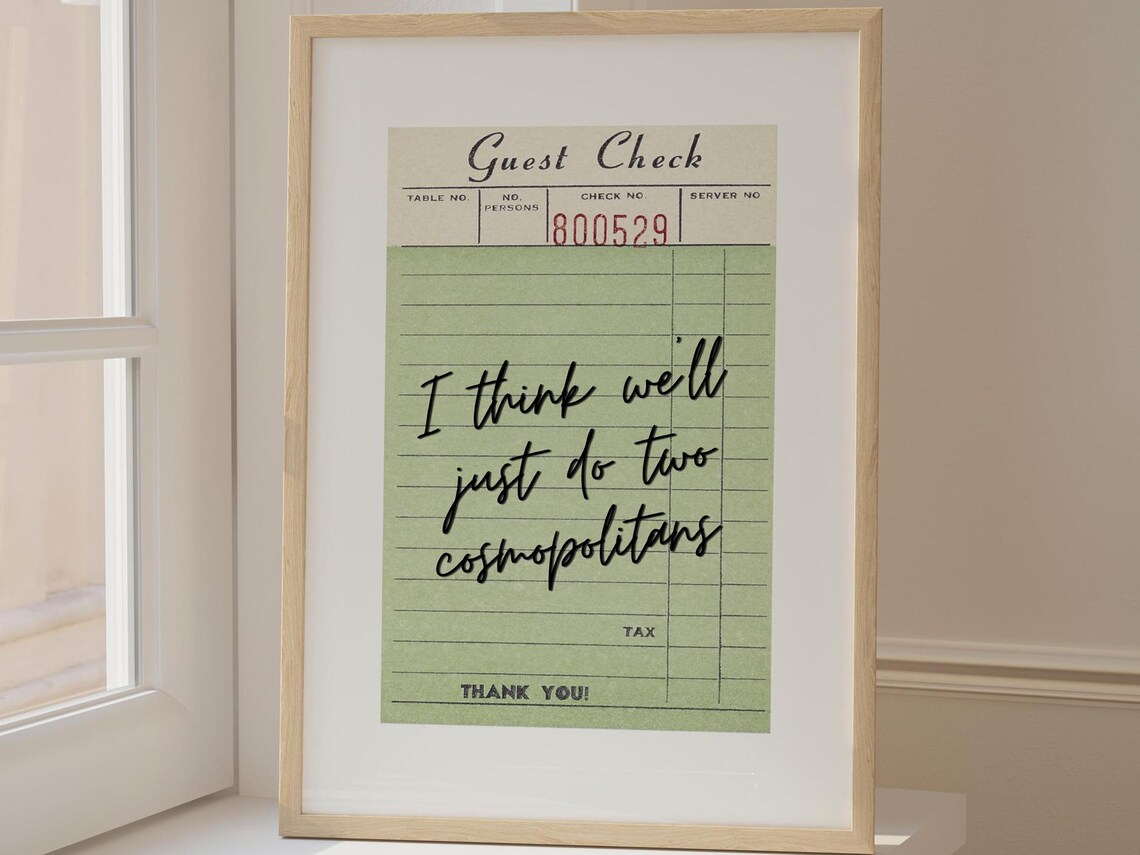 Guest Check
TABLE NO. NO. PERSONS CHECK NO. SERVER NO
800529
I think we'll
just do two
cosmopolitans
TAX
THANK YOU!